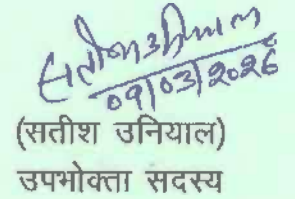 सतीश उनियाल
09/03/2026
(सतीश उनियाल)
उपभोक्ता सदस्य